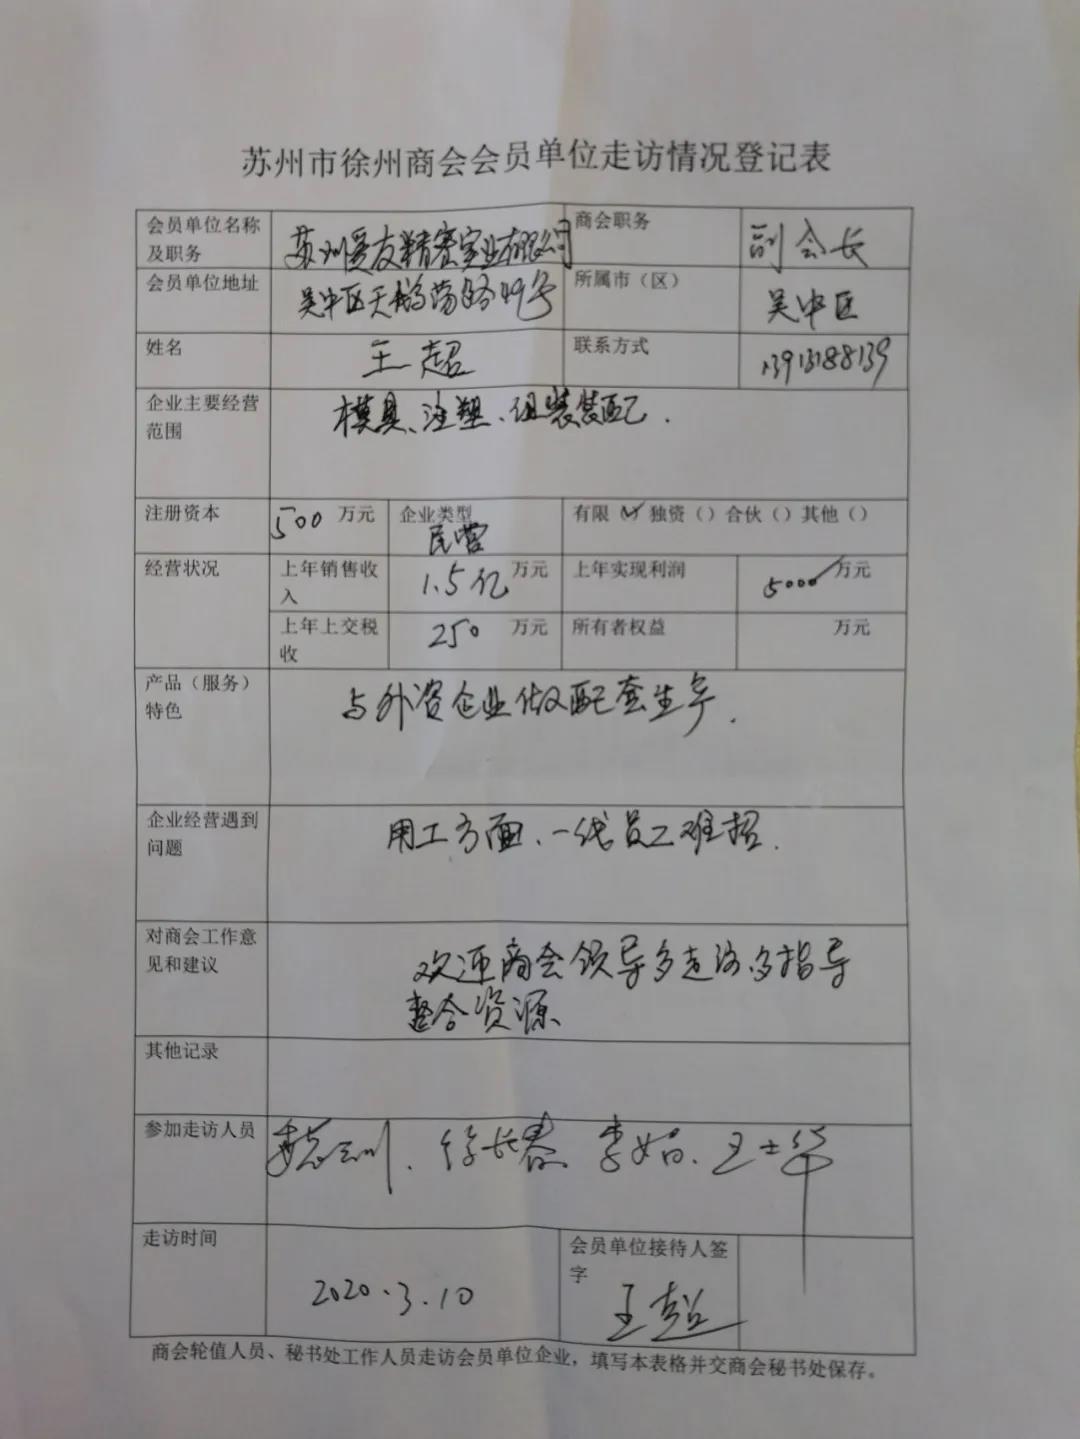 苏州市徐州商会会员单位走访情况登记表
会员单位名称
及职务
苏州爱友精密实业有限公司
商会职务
副会长
会员单位地址
吴中区天鹅荡路49号
所属市（区）
吴中区
姓名
王超
联系方式
企业主要经营
范围
模具、注塑、组装装配.
注册资本
500 万元
企业类型
民营
有限（✓）独资（）合伙（）其他（）
经营状况
上年销售收
入
1.5亿 万元
上年实现利润
5000 万元
上年上交税
收
250 万元
所有者权益
万元
产品（服务）
特色
与外资企业做配套生产.
企业经营遇到
问题
用工方面、一线员工难招.
对商会工作意
见和建议
欢迎商会领导多走访多指导
整合资源
其他记录
参加走访人员
徐长春 李娟、王士华
走访时间
2020.3.10
会员单位接待人签
字
王超
商会轮值人员、秘书处工作人员走访会员单位企业，填写本表格并交商会秘书处保存。